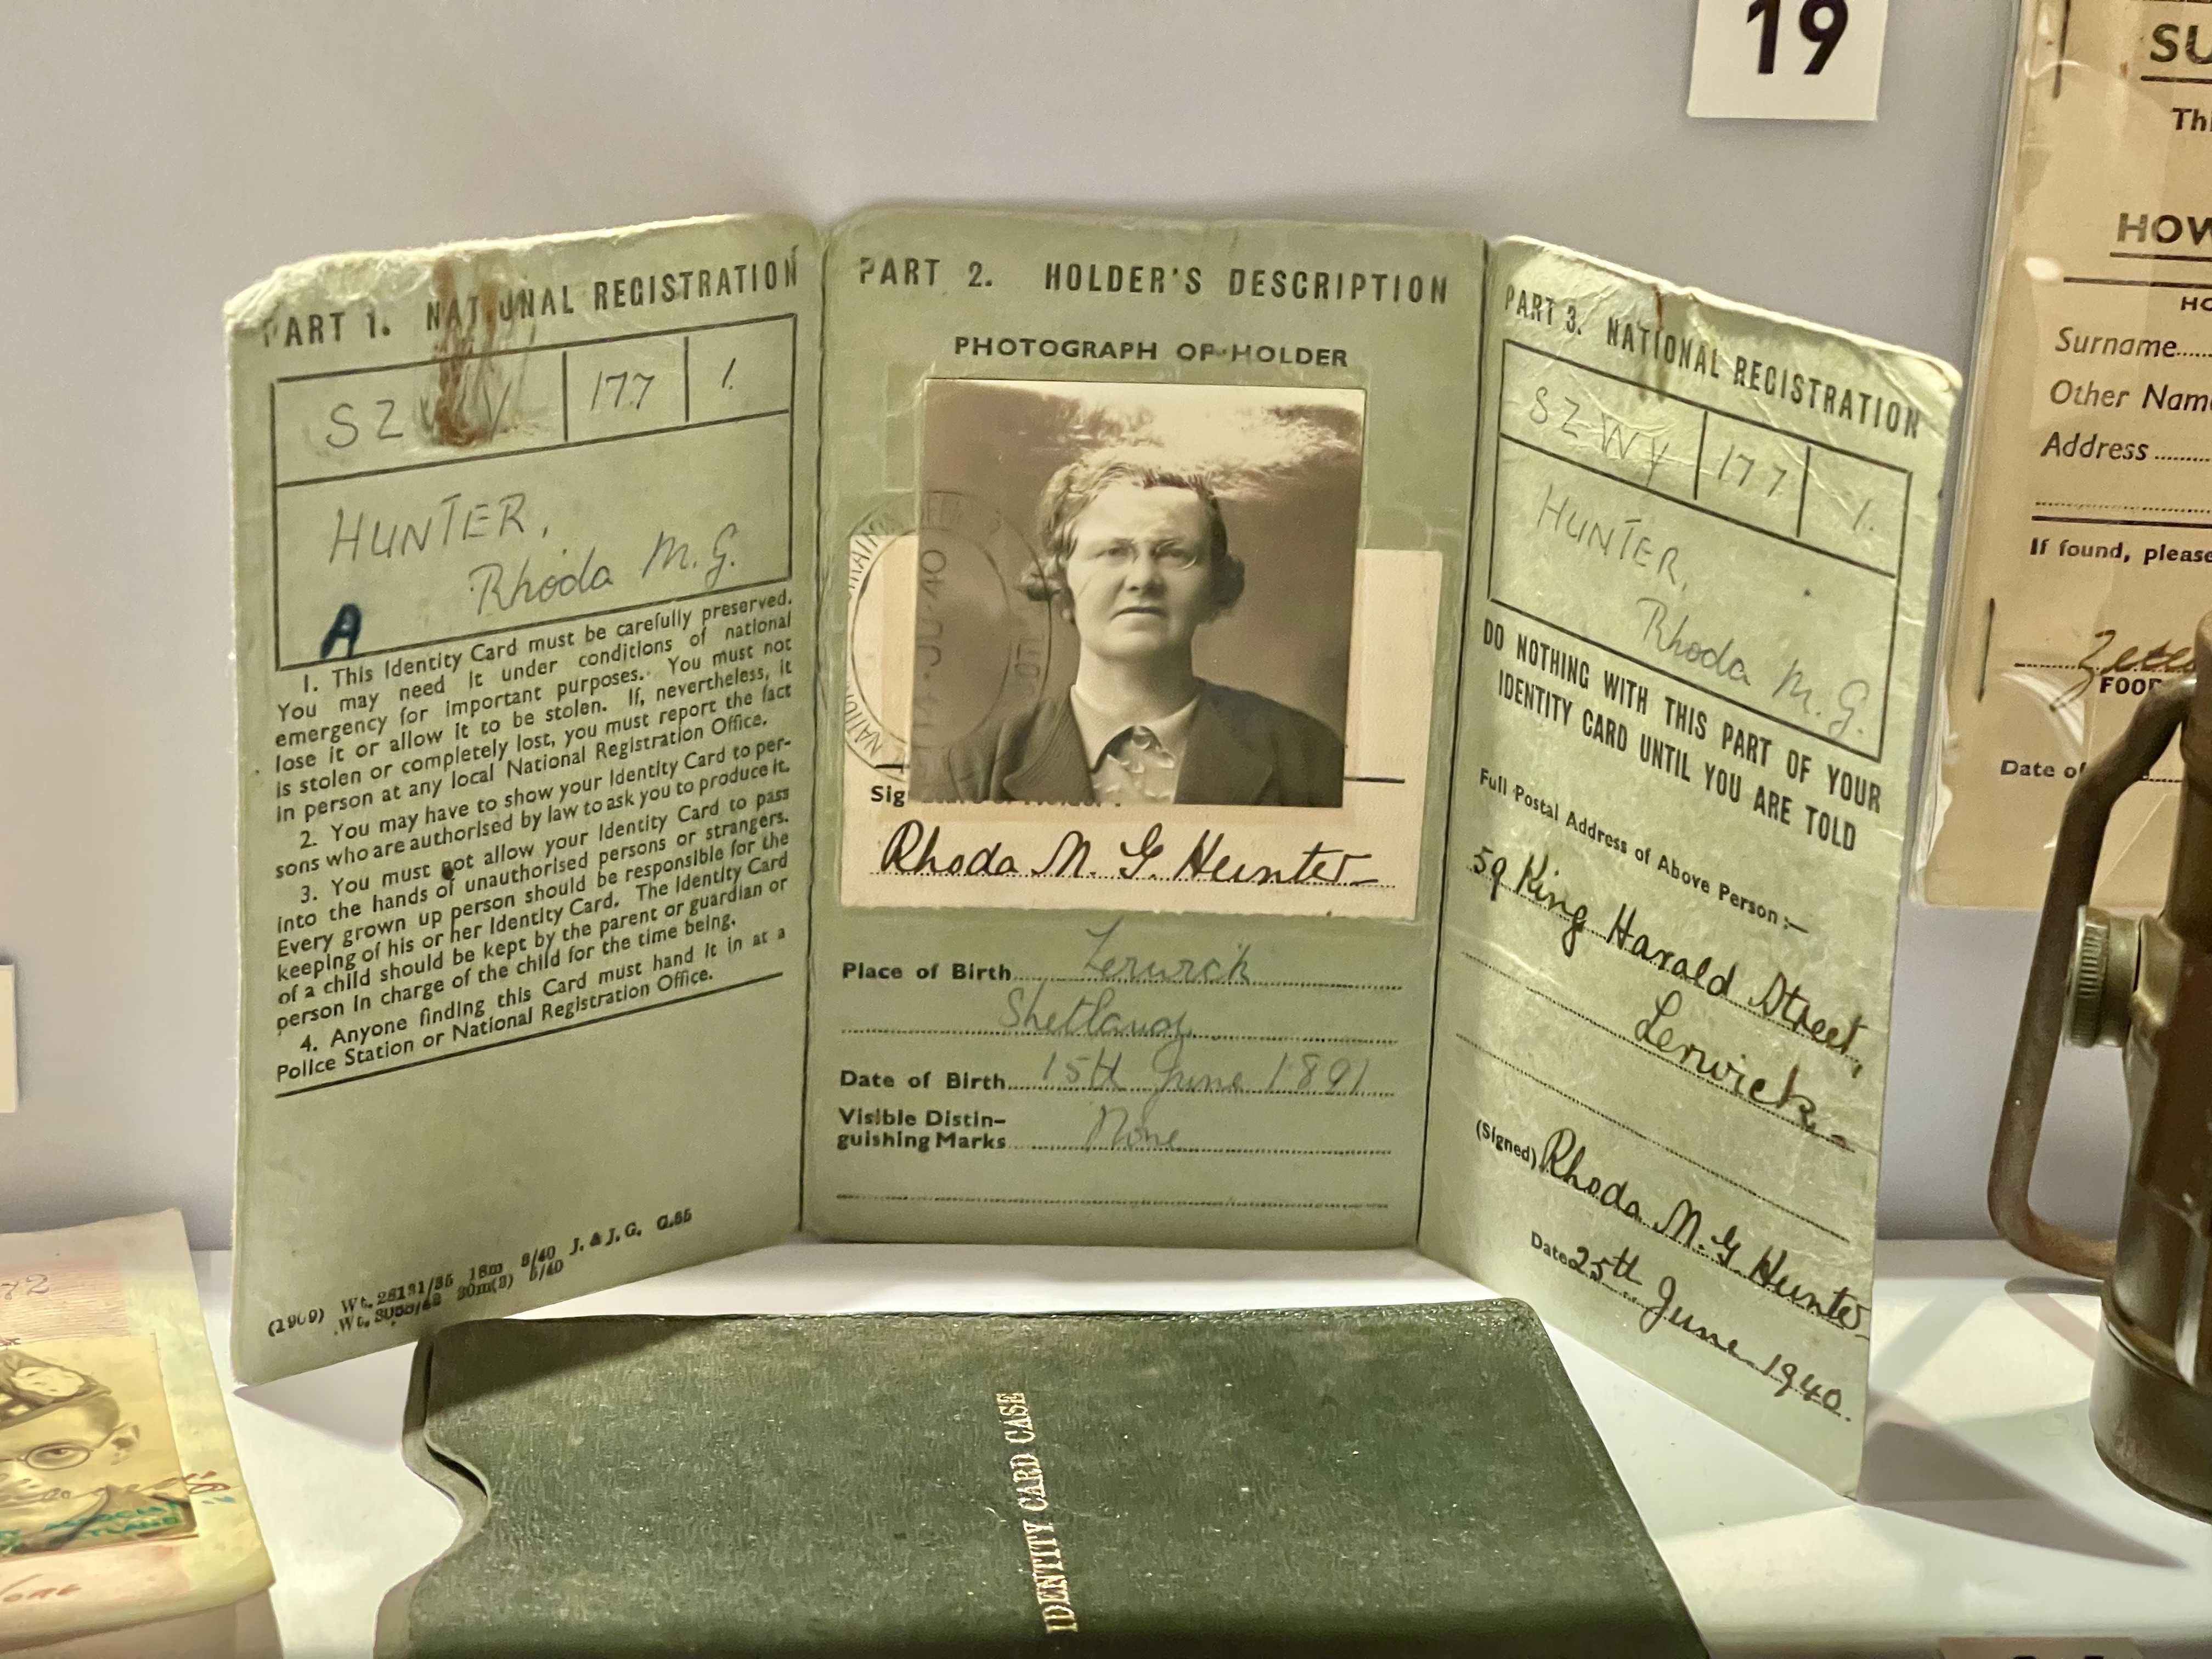 19
PART 1. NATIONAL REGISTRATION
SZ 177 1.
HUNTER,
Rhoda M. G.
A
1. This Identity Card must be carefully preserved.
You may need it under conditions of national
emergency for important purposes. You must not
lose it or allow it to be stolen. If, nevertheless, it
is stolen or completely lost, you must report the fact
in person at any local National Registration Office.
2. You may have to show your Identity Card to per-
sons who are authorised by law to ask you to produce it.
3. You must not allow your Identity Card to pass
into the hands of unauthorised persons or strangers.
Every grown up person should be responsible for the
keeping of his or her Identity Card. The Identity Card
of a child should be kept by the parent or guardian or
person in charge of the child for the time being.
4. Anyone finding this Card must hand it in at a
Police Station or National Registration Office.
Wt. 18m J. & J. G.
Wt. 5/40
PART 2. HOLDER'S DESCRIPTION
PHOTOGRAPH OF HOLDER
Rhoda M. G. Hunter
Place of Birth Lerwick
Shetland
Date of Birth 15th June 1891
Visible Distin-
guishing Marks None
PART 3. NATIONAL REGISTRATION
SZ WY 177 1.
HUNTER,
Rhoda M. G.
DO NOTHING WITH THIS PART OF YOUR
IDENTITY CARD UNTIL YOU ARE TOLD
Full Postal Address of Above Person:—
59 King Harald Street,
Lerwick
(Signed) Rhoda M. G. Hunter
Date 25th June 1940.
IDENTITY CARD CASE
SU
HOW
Surname
Other Nam
Address
If found, please
FOOD
Date of